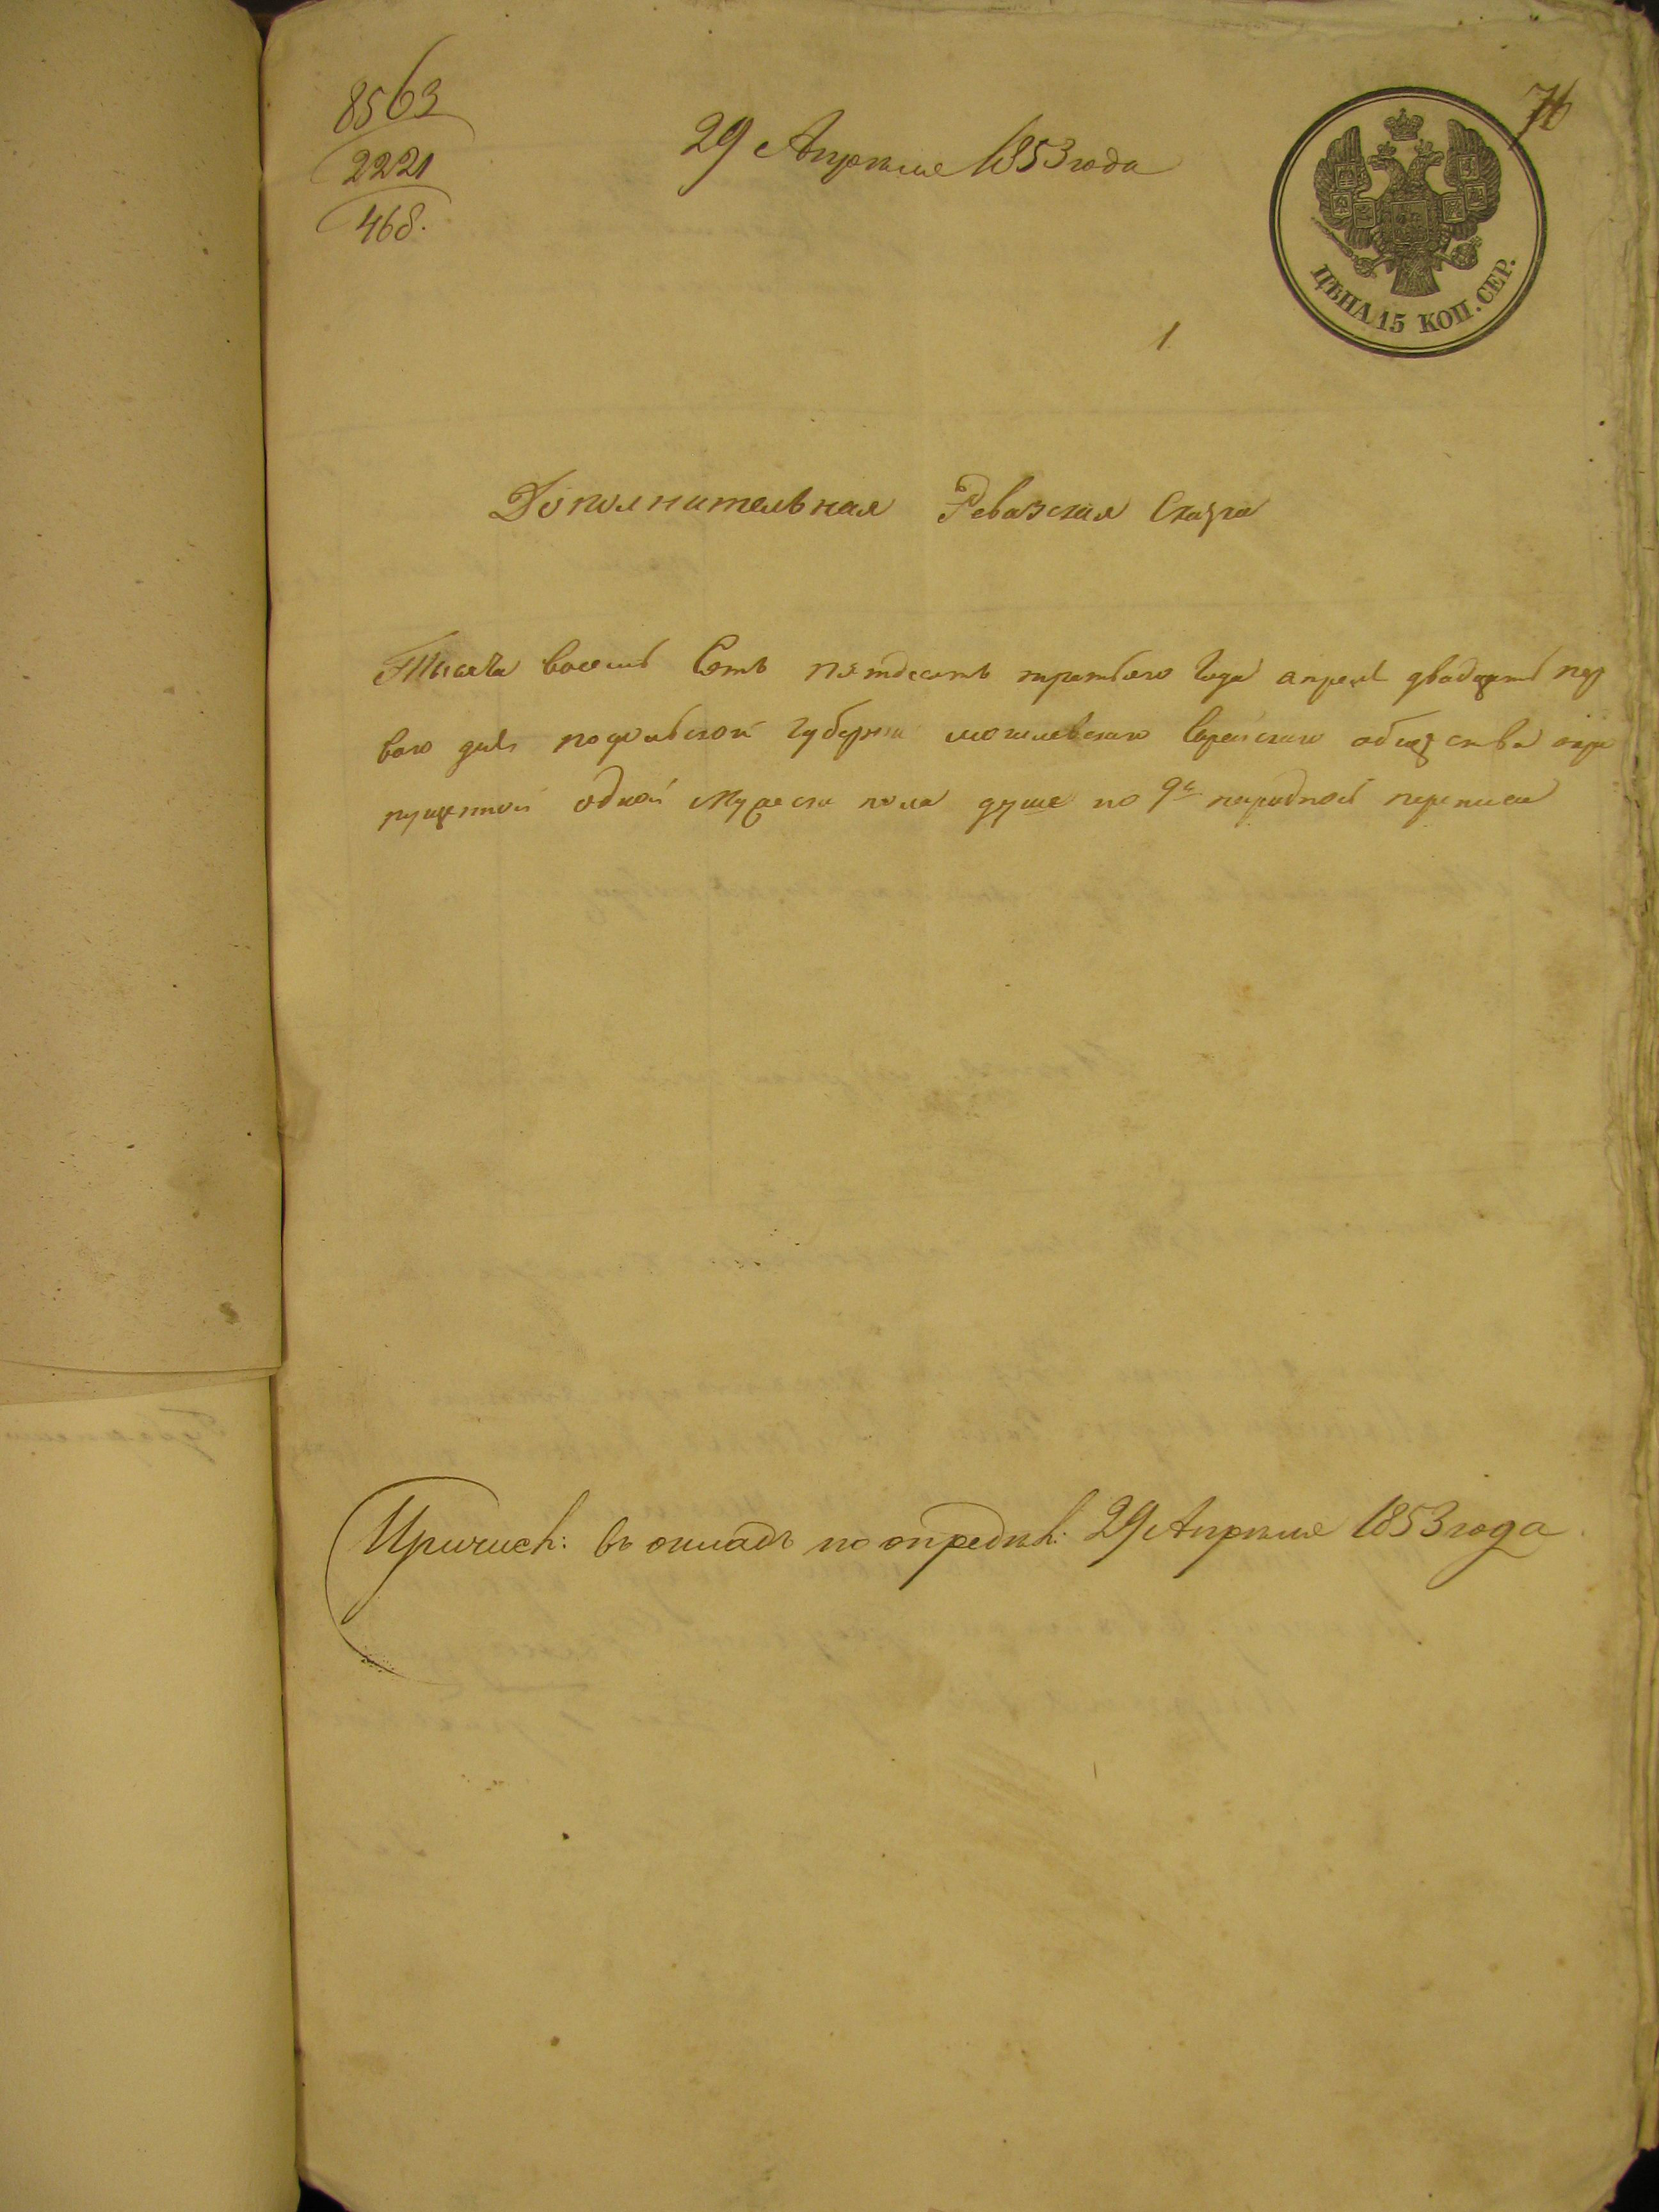 8563
2221
468.
29 Апрѣля 1853 года
76
ЦѢНА 15 КОП. СЕР.
1
Дополнительная Ревазская Сказка
Тысяча восемь Сотъ пятдесятъ третьего Года апреля двадцать пер
вого дня подольской губерни могилевскаго Еврейскаго общества о про
пущенной одной мужеска пола душе по 9й народной переписи
Причисл: въ окладъ по опредѣл: 29 Апрѣля 1853 года